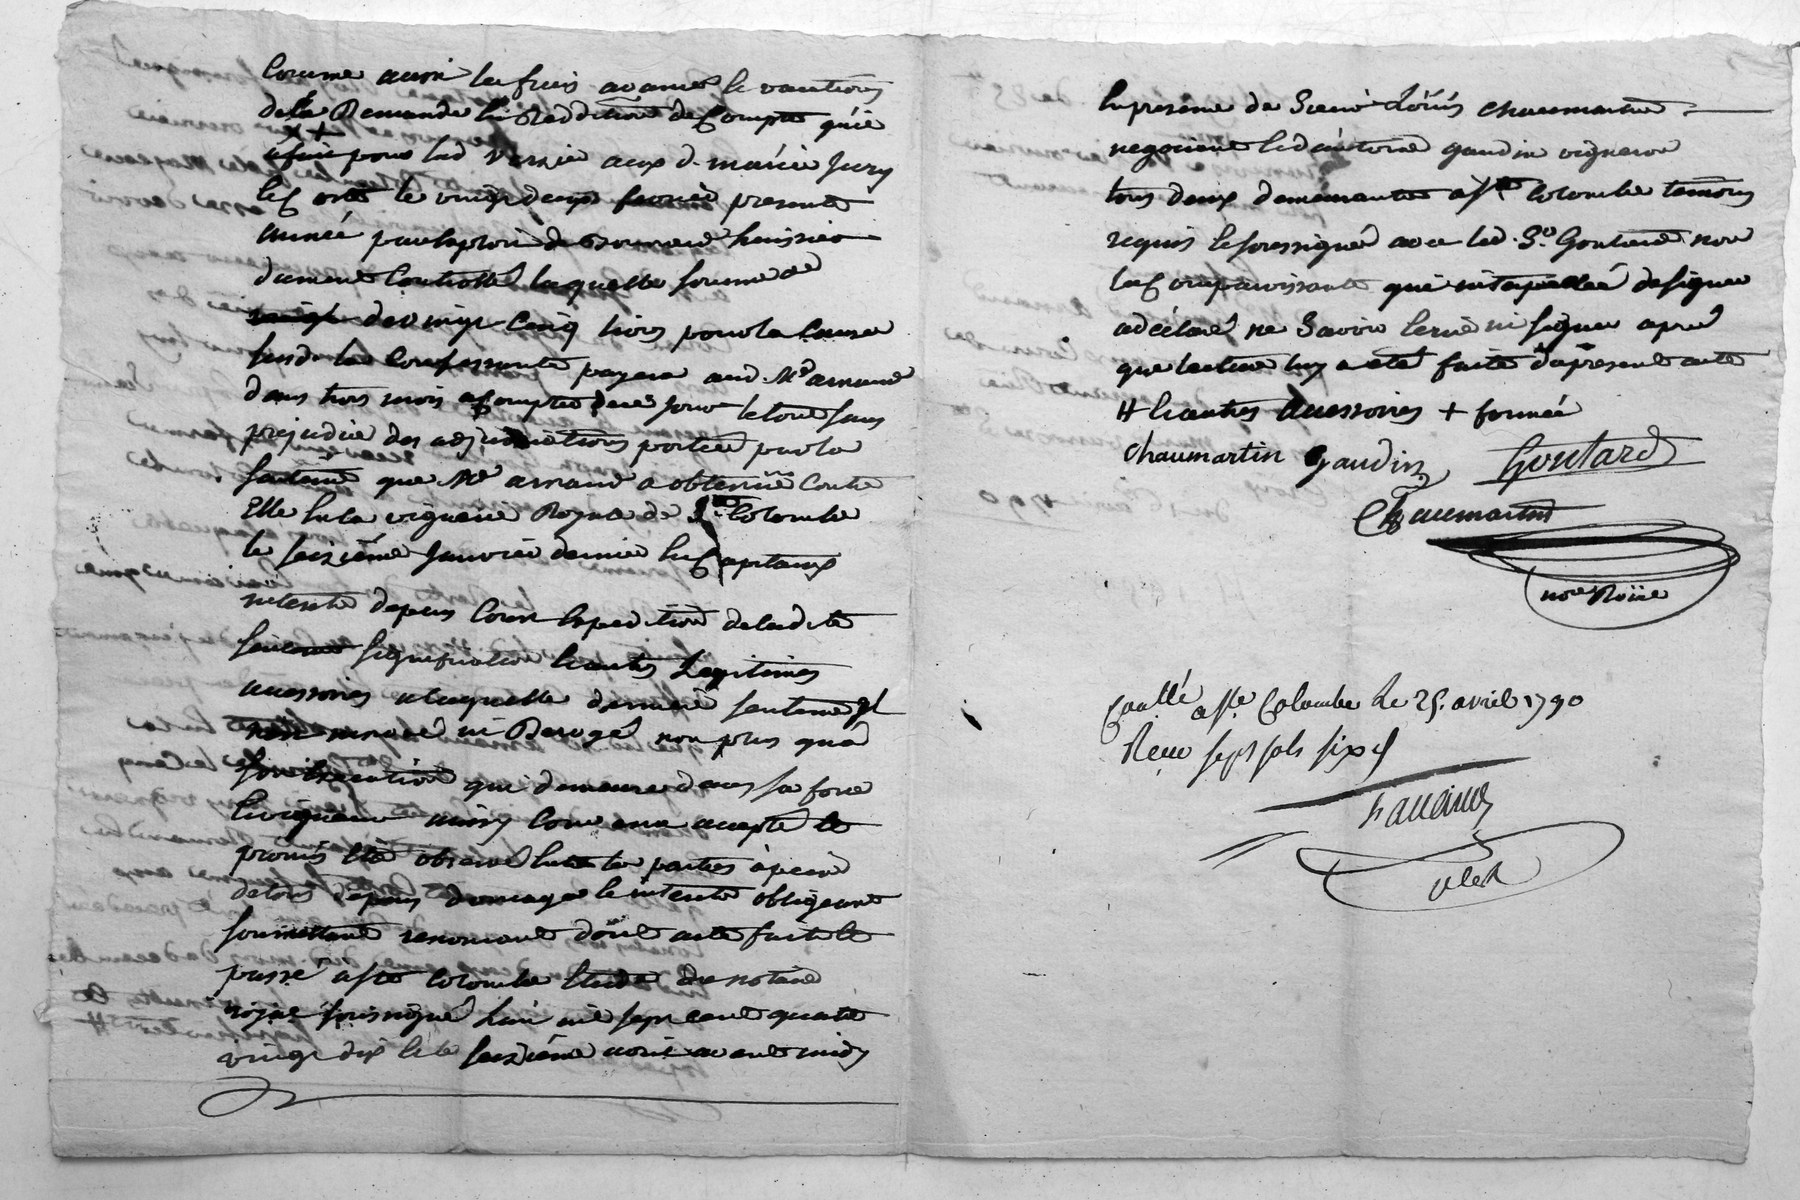 Comme aussi les frais avances & vacations
de la Demande en Reddition de Compte qu'il
a fait pour lad. Versie aux d. mariés Jury
le vingt deux fevrier presente
année par exploit de huissier
dument Controllé laquelle somme de
de vingt Cinq livres pour la Cause
susd. la Comparissante payera aud. Me arnaud
dans trois mois a Compter de ce jour le tout sans
prejudice des adjudications portées par la
sentence que Me arnaud a obtenüe Contre
Elle en la viguerie Royale de Ste Colombe
le seizième Janvier dernier en Capitaux
interets depens Cout Expedition de ladite
sentence signification & autres Legitimes
accessoires a laquelle derniere sentence Il
innové ni Derogé non plus qu'a
son Execution qui demeure dans sa force
& vigueur ainsy Convenu accepté &
promis Etre observé Entre les parties à peine
de tous depens domage & interets obligeant
soumettant renonceant dont acte fait &
passé à Ste Colombe Etude du notaire
royal soussigné L'an mil sept cent quatre
vingt dix & le seizième avril avant midy
En presence de Sieur Loüis chaumartin
negociant & d'antoine gaudin vigneron
tous deux demeurants a Ste Colombe temoins
requis & soussignés avec led. Sr. Goutard non
la Comparoissante qui interpellée de signer
a déclaré ne Savoir Ecrire ni signer aprés
que lecture luy a eté faite du present acte
# & autres accessoires + formée
chaumartin Gaudin Goutard
Chaumartin
nore Roïal
Conllé a Ste Colombe Le 25. avril 1790
Recu sept sols six d